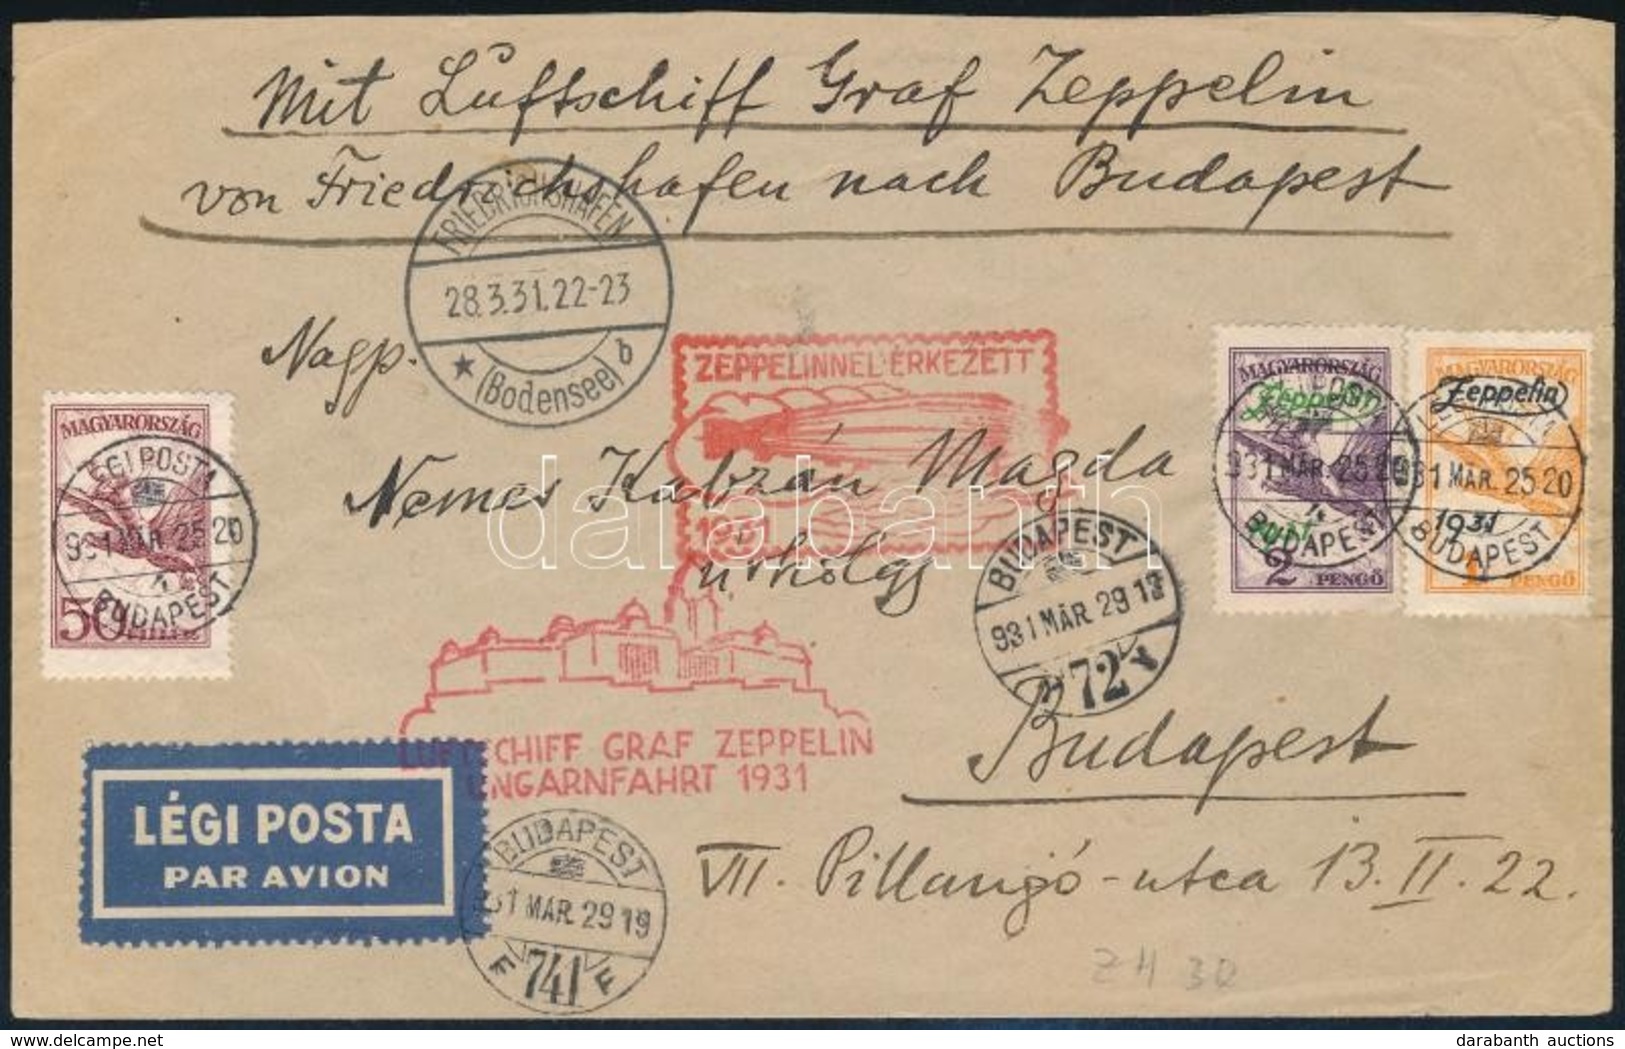 Mit Luftschiff Graf Zeppelin
von Friedrichshafen nach Budapest
FRIEDRICHSHAFEN
28.3.31.22-23
(Bodensee) b
Nagp.
ZEPPELINNEL ÉRKEZETT
1931
MAGYARORSZÁG
LÉGI POSTA
931 MÁR. 25 20
BUDAPEST
50
MAGYARORSZÁG
Zeppelin
931 MÁR. 25 20
BUDAPEST
2 PENGŐ
MAGYARORSZÁG
Zeppelin
931 MÁR. 25 20
1931
BUDAPEST
1 PENGŐ
Nemes Kabzán Magda
darabanth
úrhölgy
BUDAPEST
931 MÁR. 29 18
72
LUFTSCHIFF GRAF ZEPPELIN
UNGARNFAHRT 1931
Budapest
LÉGI POSTA
PAR AVION
BUDAPEST
931 MÁR. 29 19
F 741 F
VII. Pillangó-utca 13. II. 22.
darabanth auctions